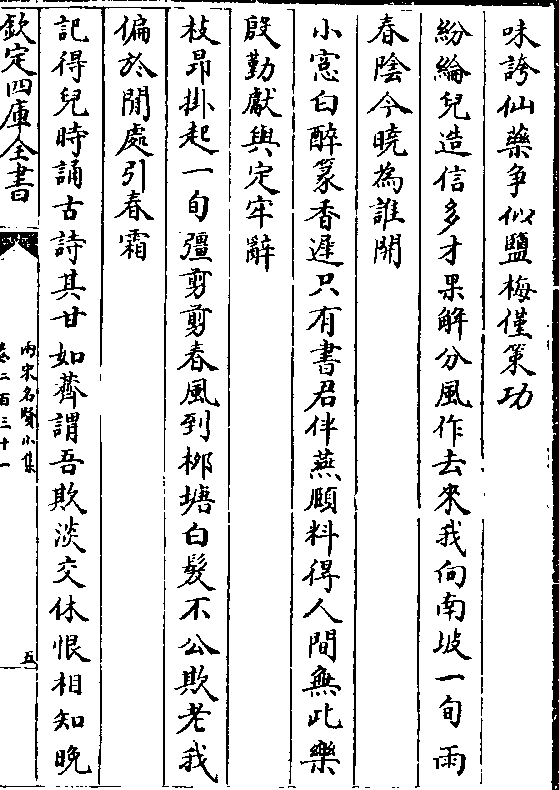 味誇仙藥争似鹽梅僅策功
紛綸兒造信多才果解分風作去來我向南坡一旬雨
春陰今曉為誰開
小窓白醉篆香遲只有書君伴燕頤料得人間無此樂
殷勤獻與定牢辭
枝昻掛起一旬彊剪剪春風到桺塘白髮不公欺老我
偏於閒處引春霜
記得兒時誦古詩其甘如薺謂吾欺淡交休恨相知晚
欽定四庫全書
兩宋名賢小集
卷二百三十一
五